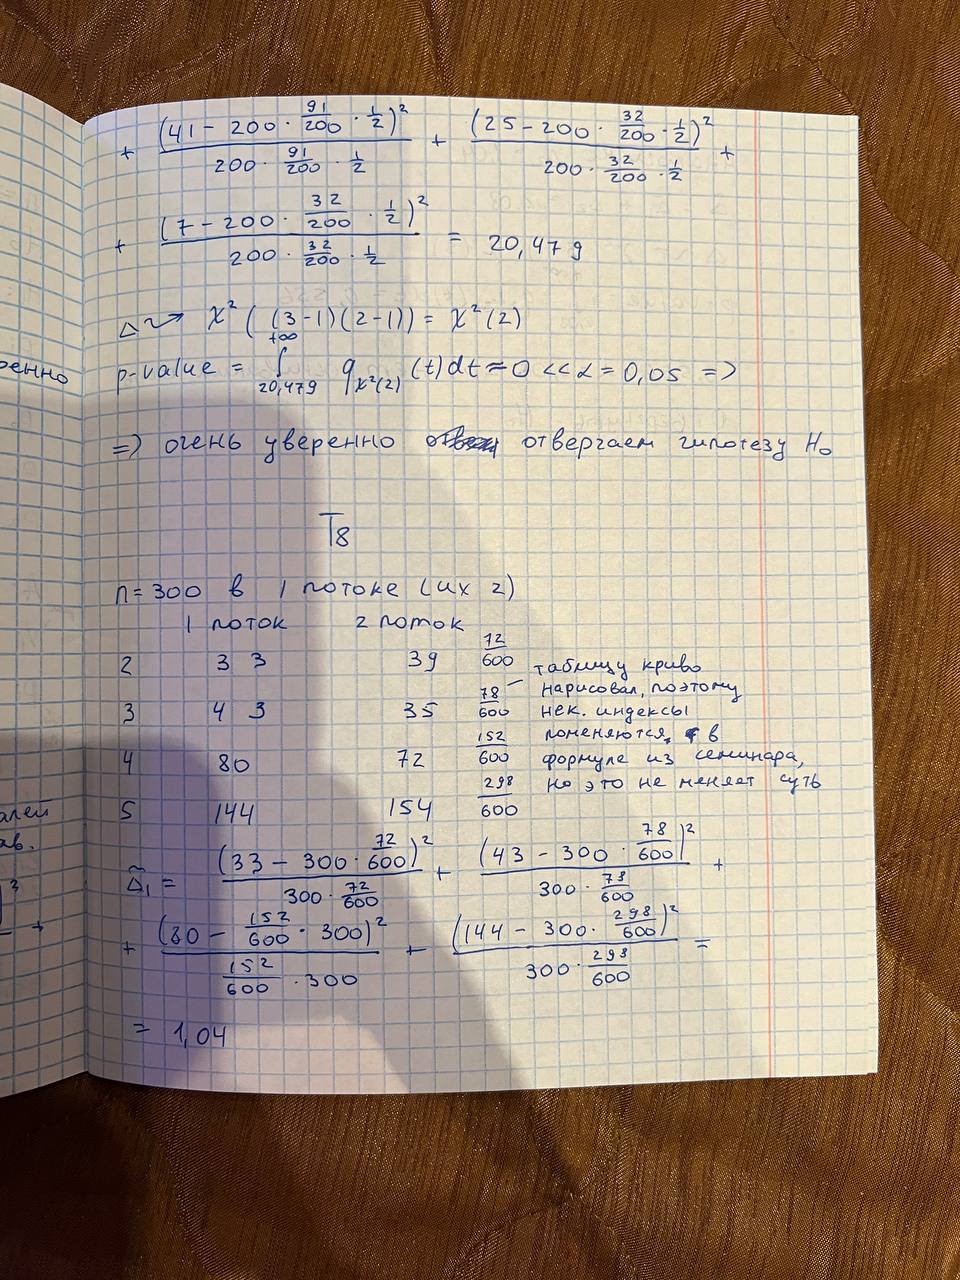 + (41 − 200 · 91/200 · 1/2)² / (200 · 91/200 · 1/2) + (25 − 200 · 32/200 · 1/2)² / (200 · 32/200 · 1/2) +
+ (7 − 200 · 32/200 · 1/2)² / (200 · 32/200 · 1/2) = 20,479
Δ ⇝ χ² ( (3-1)(2-1)) = χ²(2)
p-value = ∫_{20,479}^{+∞} q_{χ²(2)} (t)dt ≈ 0 << α = 0,05 =>
=> очень уверенно отвергаем гипотезу H₀
T8
n = 300 в 1 потоке (их 2)
1 поток 2 поток
2 33 39 72/600
3 43 35 78/600
4 80 72 152/600
5 144 154 298/600
таблицу криво
нарисовал, поэтому
нек. индексы
поменяются, в
формуле из семинара,
но это не меняет суть
Δ̃₁ = (33 − 300 · 72/600)² / (300 · 72/600) + (43 − 300 · 78/600)² / (300 · 78/600) +
+ (80 − 152/600 · 300)² / (152/600 · 300) + (144 − 300 · 298/600)² / (300 · 298/600) =
= 1,04
ренно